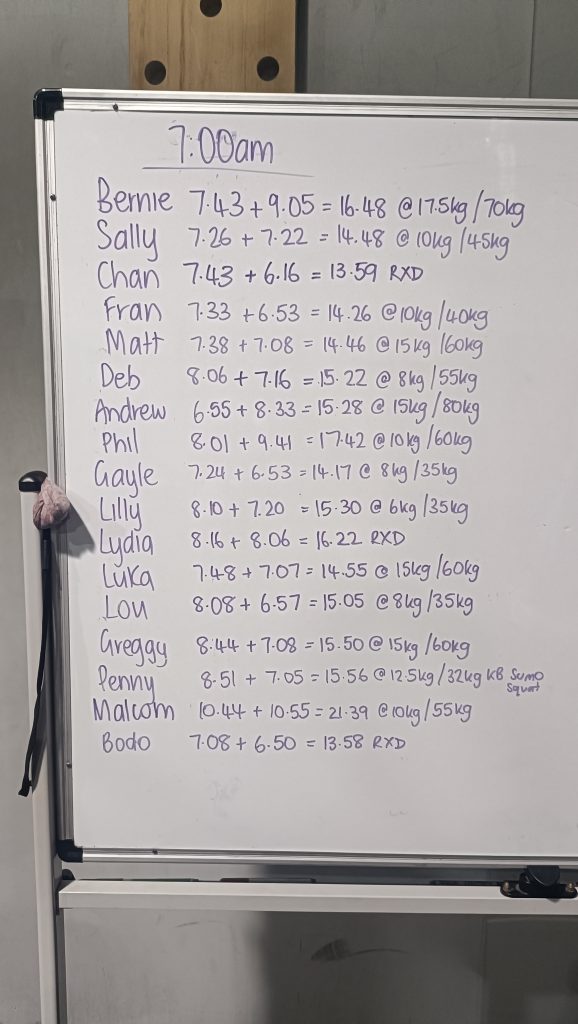 7:00am
Bernie 7.43 + 9.05 = 16.48 @ 17.5kg / 70kg
Sally 7.26 + 7.22 = 14.48 @ 10kg / 45kg
Chan 7.43 + 6.16 = 13.59 RXD
Fran 7.33 + 6.53 = 14.26 @ 10kg / 40kg
Matt 7.38 + 7.08 = 14.46 @ 15kg / 60kg
Deb 8.06 + 7.16 = 15.22 @ 8kg / 55kg
Andrew 6.55 + 8.33 = 15.28 @ 15kg / 80kg
Phil 8.01 + 9.41 = 17.42 @ 10kg / 60kg
Gayle 7.24 + 6.53 = 14.17 @ 8kg / 35kg
Lilly 8.10 + 7.20 = 15.30 @ 6kg / 35kg
Lydia 8.16 + 8.06 = 16.22 RXD
Luka 7.48 + 7.07 = 14.55 @ 15kg / 60kg
Lou 8.08 + 6.57 = 15.05 @ 8kg / 35kg
Greggy 8.44 + 7.08 = 15.50 @ 15kg / 60kg
Penny 8.51 + 7.05 = 15.56 @ 12.5kg / 32kg KB Sumo
Squat
Malcom 10.44 + 10.55 = 21.39 @ 10kg / 55kg
Bodo 7.08 + 6.50 = 13.58 RXD